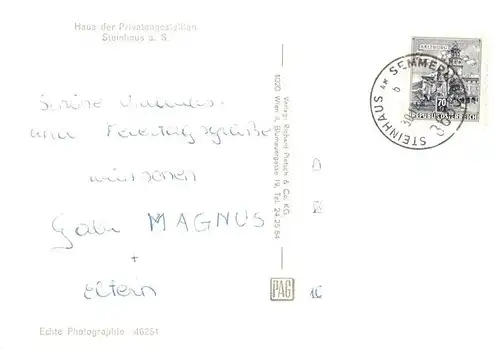 Haus der Privatangestellten
Steinhaus a. S.
Schöne
und Feiertagsgrüße
wünschen
Gabi MAGNUS
+
Eltern
Echte Photographie 46251
Verlag: Robert Pietsch & Co. KG.
1020 Wien II, Blumauergasse 19, Tel. 24 25 64
PAG
SALZBURG
70
REPUBLIK ÖSTERREICH
STEINHAUS AM SEMMERING
b